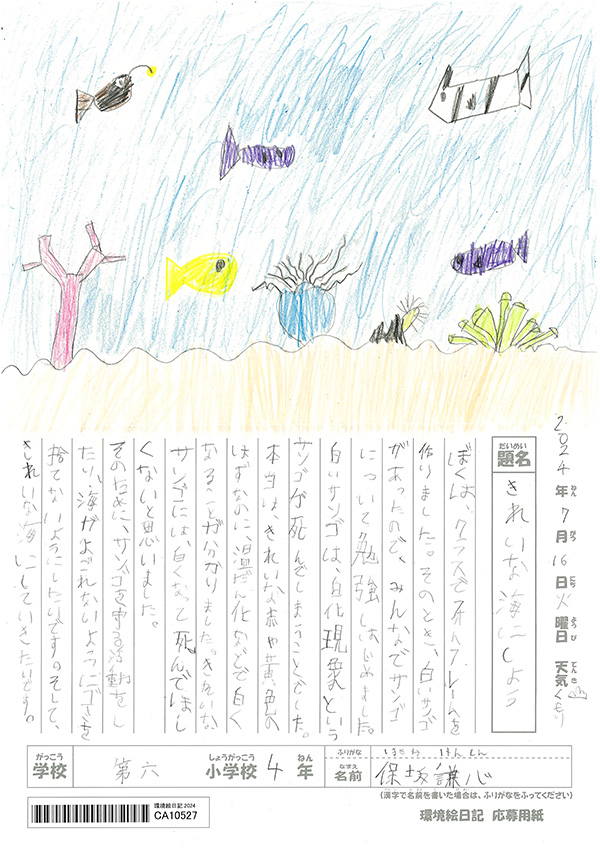 2024年7月16日火曜日 天気くもり
ねん がつ にち ようび てんき
だいめい
題名 きれいな海にしよう
ぼくは、クラスで フレームを
作りました。そのとき、白いサンゴ
があったので、みんなでサンゴ
について勉強しはじめました。
白いサンゴは、白化現象という
サンゴが死んでしまうことでした。
本当は、きれいな赤や黄色の
はずなのに、温だん化などで白く
なることが分かりました。きれいな
サンゴには、白くなって死んでほし
くないと思いました。
そのために、サンゴを守る活動をし
たり、海がよごれないようにゴミを
捨てないようにしたいです。そして、
きれいな海にしていきたいです。
がっこう しょうがっこう ねん
学校 第六 小学校 4年
ふりがな ほさか けんしん
なまえ
名前 保坂謙心
(漢字で名前を書いた場合は、ふりがなをふってください)
環境絵日記 2024
CA10527
環境絵日記 応募用紙